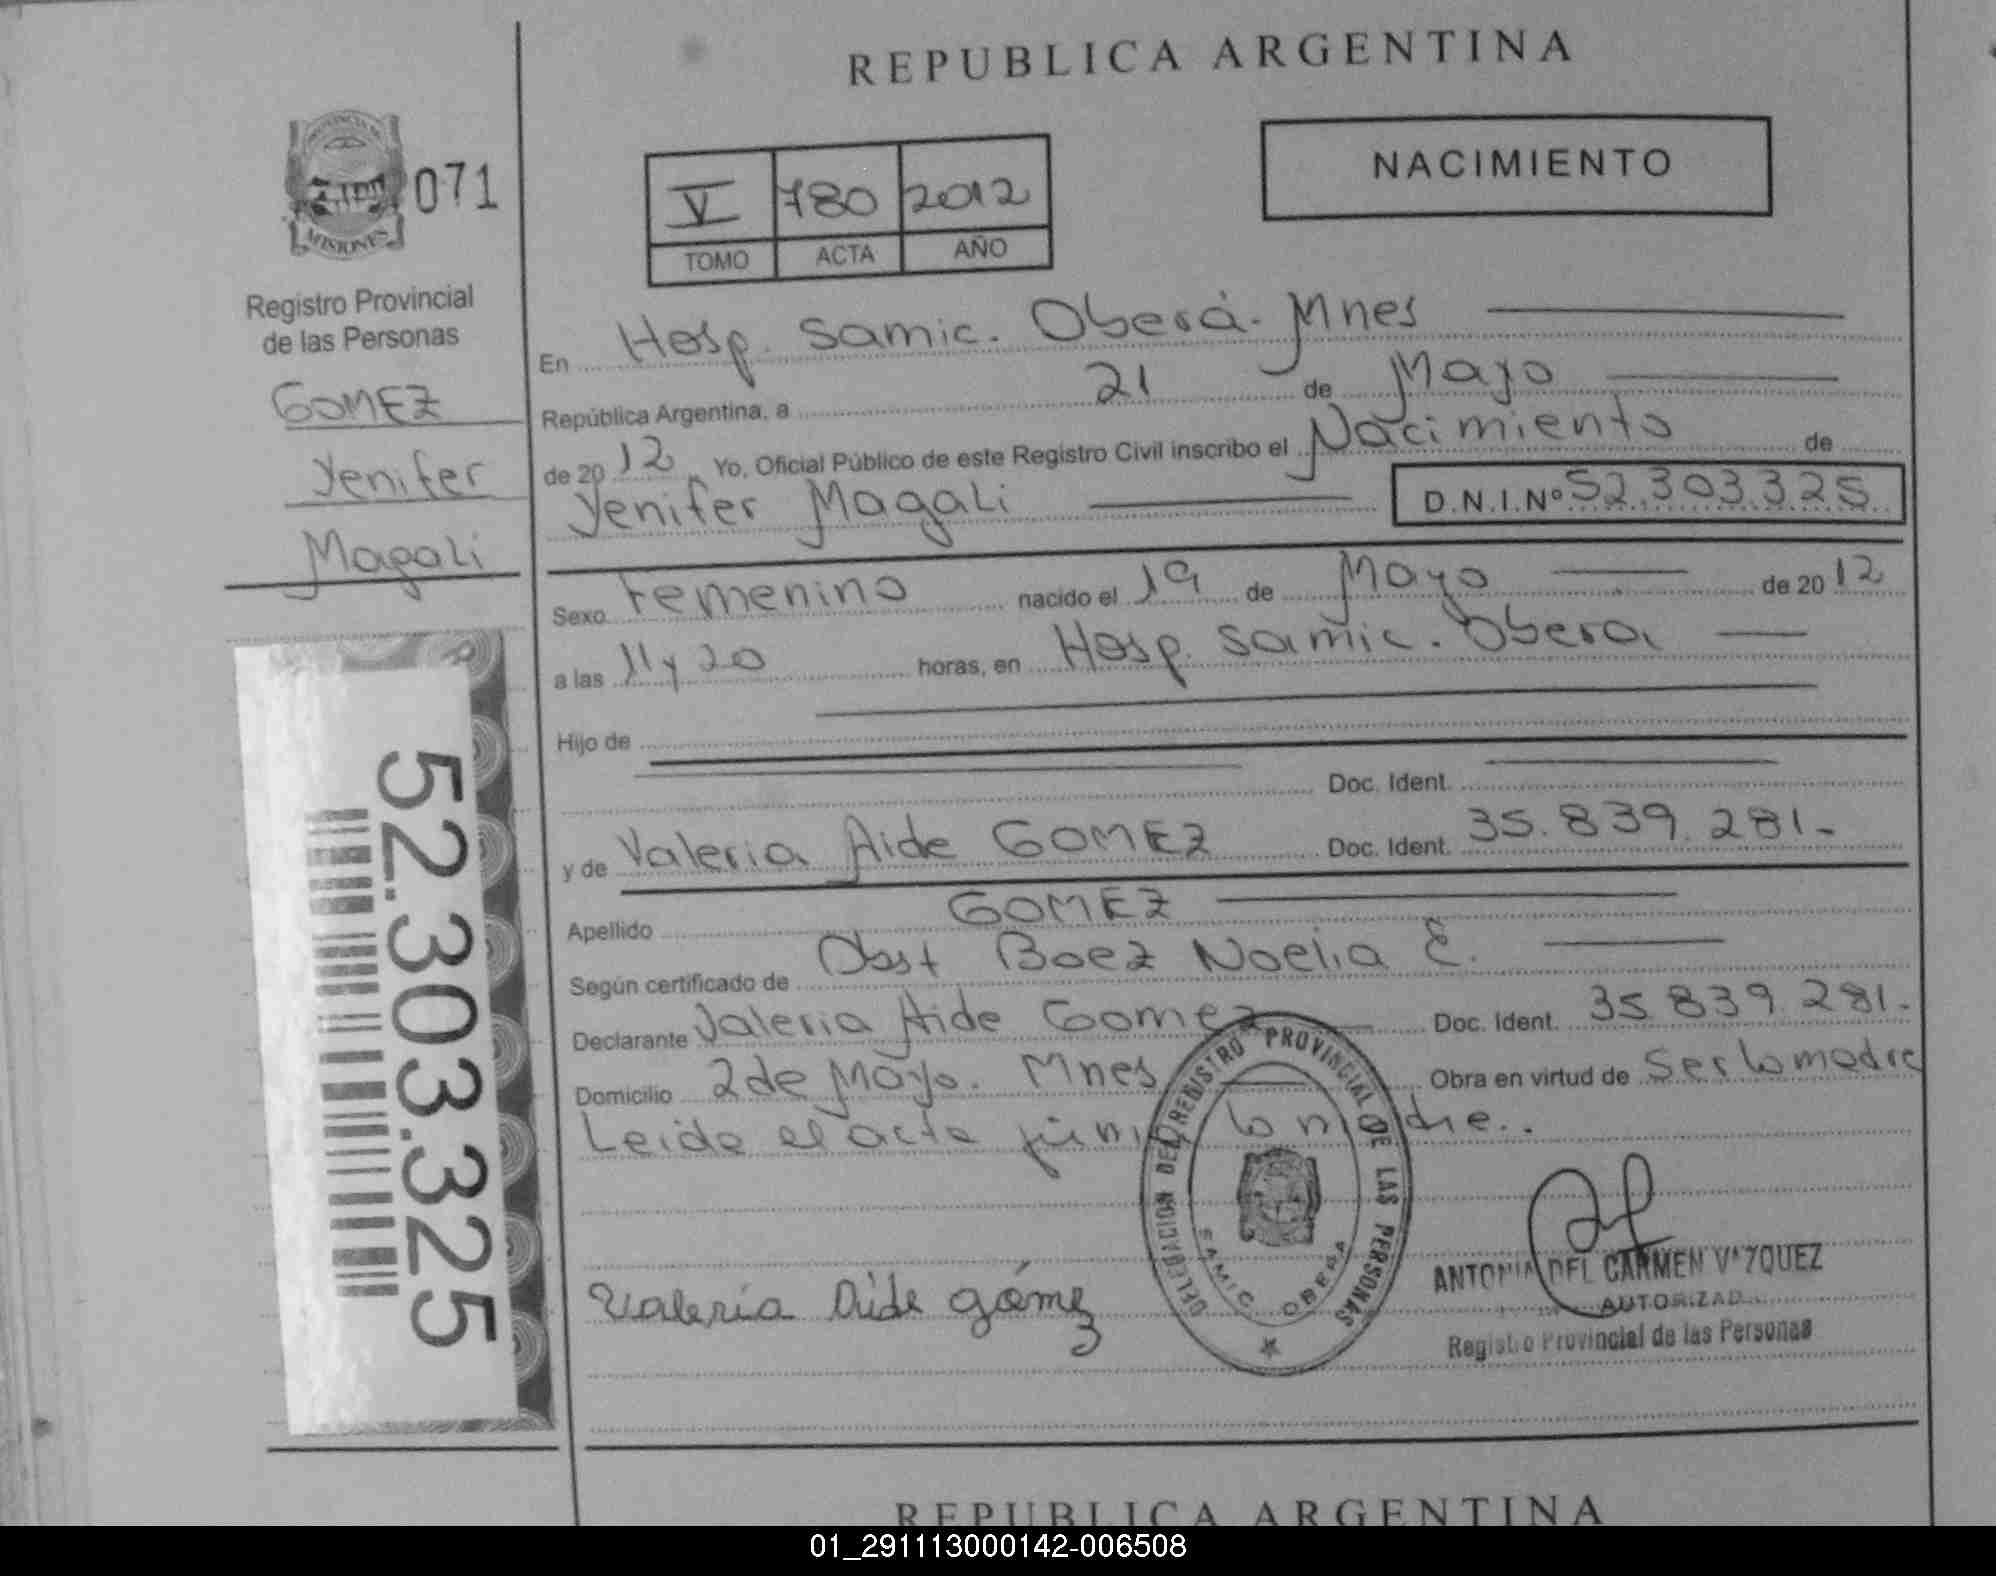 REPUBLICA ARGENTINA
PROVINCIA DE
MISIONES
071
Registro Provincial
de las Personas
GOMEZ
Yenifer
Magali
52.303.325
V 780 2012
TOMO ACTA AÑO
NACIMIENTO
En Hosp. Samic. Oberá. Mnes
República Argentina, a 21 de Mayo
de 2012 Yo, Oficial Público de este Registro Civil inscribo el Nacimiento de
Yenifer Magali D.N.I.Nº 52.303.325
Sexo Femenino nacido el 19 de Mayo de 2012
a las 11 y 20 horas, en Hosp. Samic. Obera
Hijo de
Doc. Ident.
y de Valeria Aide GOMEZ Doc. Ident. 35.839.281-
Apellido GOMEZ
Según certificado de Obst Baez Noelia E.
Declarante Valeria Aide Gomez Doc. Ident. 35.839.281-
Domicilio 2 de Mayo. Mnes Obra en virtud de Ser la madre
Leida el acta firma la madre..
DELEGACION DEL REGISTRO PROVINCIAL DE LAS PERSONAS
SAMIC OBERA
Valeria Aide gómez
ANTONIA DEL CARMEN VAZQUEZ
AUTORIZAD
Registro Provincial de las Personas
REPUBLICA ARGENTINA
01_291113000142-006508